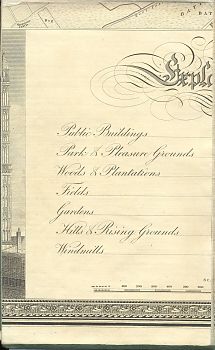 Expl
Public Buildings
Park & Pleasure Grounds
Woods & Plantations
Fields
Gardens
Hills & Rising Grounds
Windmills